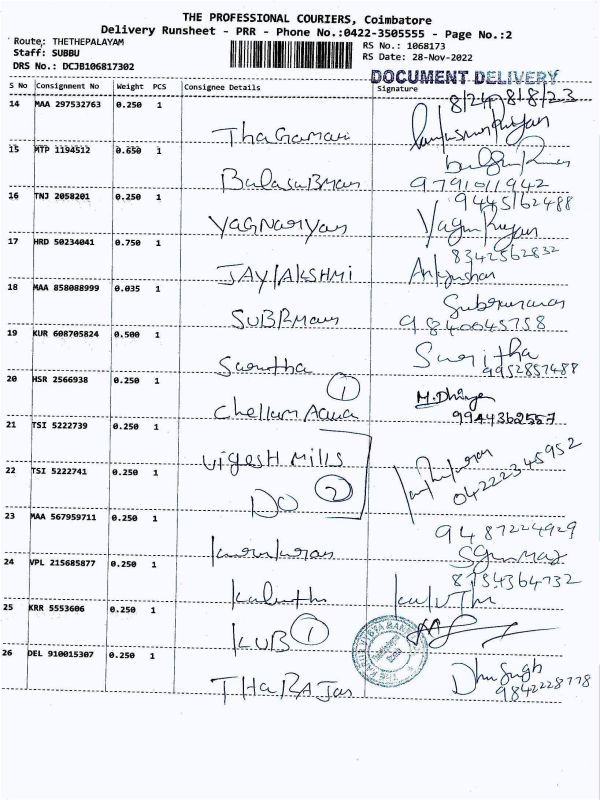 THE PROFESSIONAL COURIERS, Coimbatore
Delivery Runsheet - PRR - Phone No.:0422-3505555 - Page No.:2
Route: THETHEPALAYAM
RS No.: 1068173
Staff: SUBBU
RS Date: 28-Nov-2022
DRS No.: DCJB106817302
DOCUMENT DELIVERY
S No Consignment No Weight PCS Consignee Details Signature
14 MAA 297532763 0.250 1
15 MTP 1194512 0.650 1
BalasuBman 9791011942
16 TNJ 2058201 0.250 1 9445162488
YAGNaryan
17 HRD 50234041 0.750 1 8342562832
JAYlAKSHMI
18 MAA 858088999 0.035 1
SUBRMan 9840045758
19 KUR 608705824 0.500 1 Saritha
9952857488
20 HSR 2566938 0.250 1 1 M.Dhinga
9944362557
21 TSI 5222739 0.250 1
VigesH Mills 04222345952
22 TSI 5222741 0.250 1
DO 2
23 MAA 567959711 0.250 1 9487224929
24 VPL 215685877 0.250 1 8754364732
25 KRR 5553606 0.250 1
KVB 1
26 DEL 910015307 0.250 1
THARAJan 9842228778